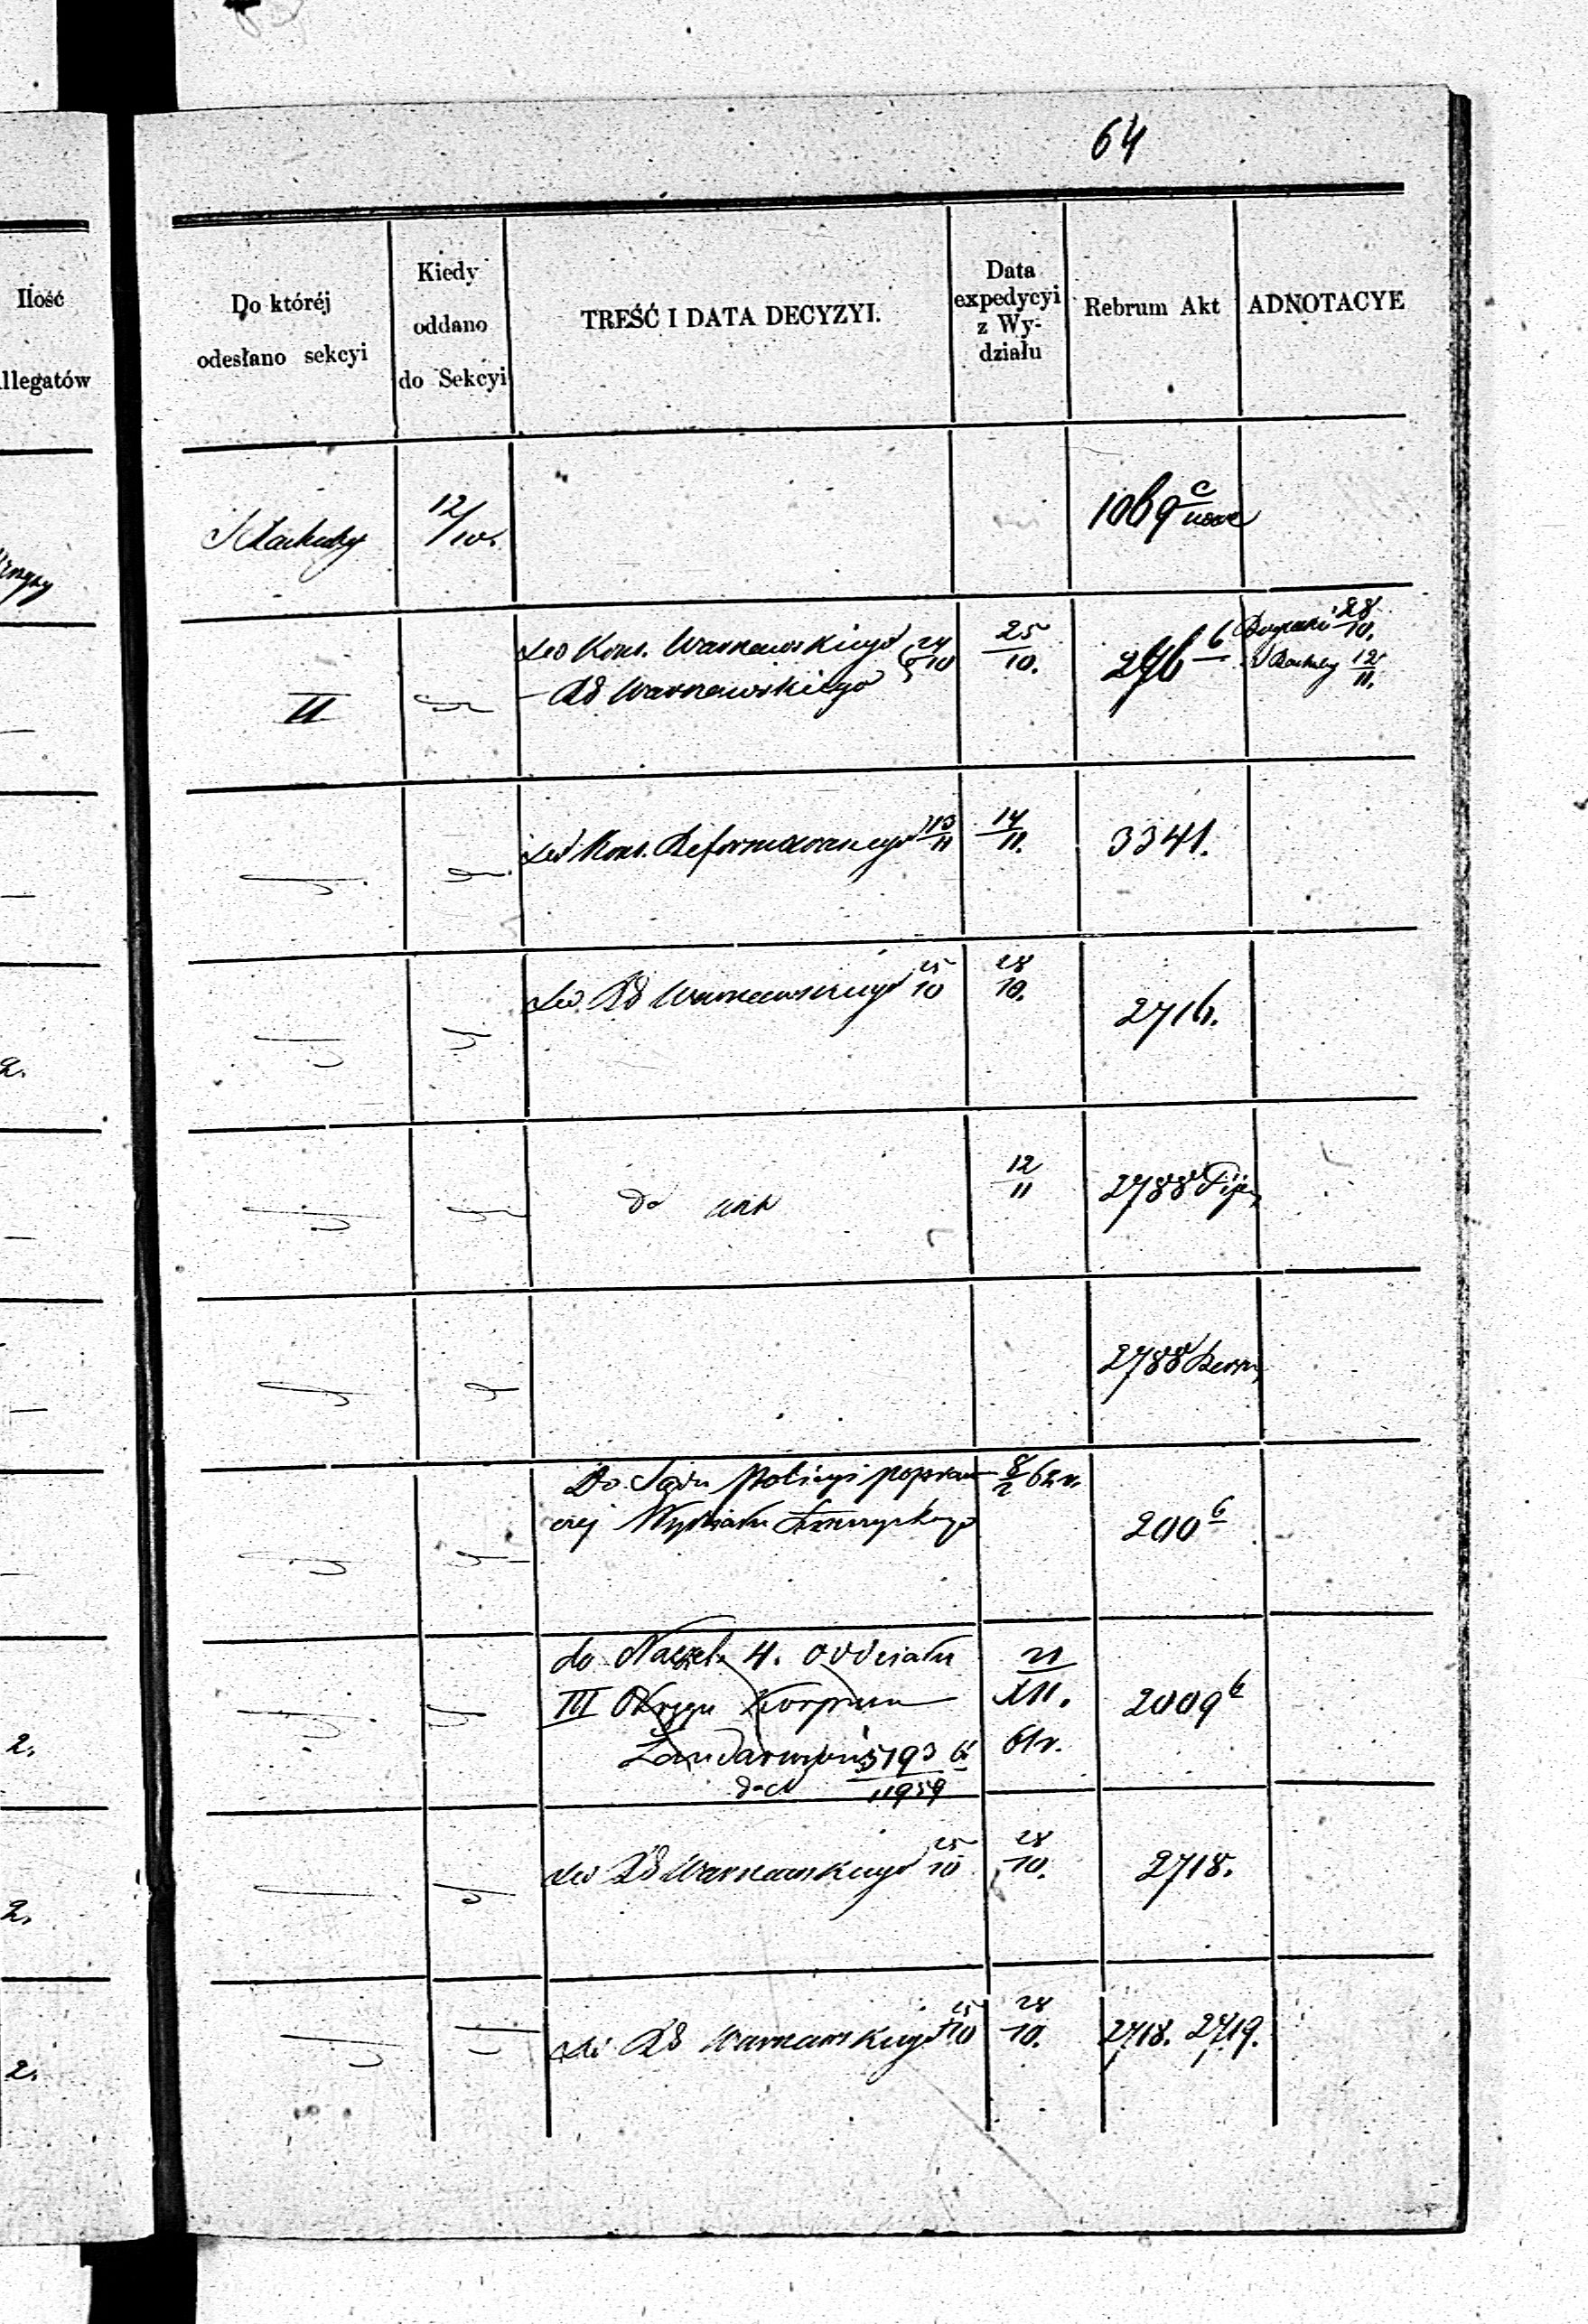 64
Ilość
llegatów
Do któréj
odesłano sekcyi
Kiedy
oddano
do Sekcyi
TREŚĆ I DATA DECYZYI.
Data
expedycyi
z Wy-
działu
Rebrum Akt
ADNOTACYE
12/10.
1069 c
II
Do Kons. Warszawskiego 24/10
Rd Warszawskiego
25/10.
246 b
28/10.
12/11.
Do Kons. Reformowanego 13/11
14/11.
3341.
Do Rd Warszawskiego 25/10
28/10.
2716.
2.
12/11
2788
2788
Do Sądu Policyi popraw
czej Wydziału
8/2 62 r.
200 b
do Naczel. 4. oddziału
III Okręgu Korpusu
Żandarmów 5193
11959
21/XII.
61 r.
2009 b
2.
Do Rd Warszawskiego 25/10
28/10.
2718.
2.
Do Rd Warszawskiego 25/10
28/10.
2718. 2719.
2.